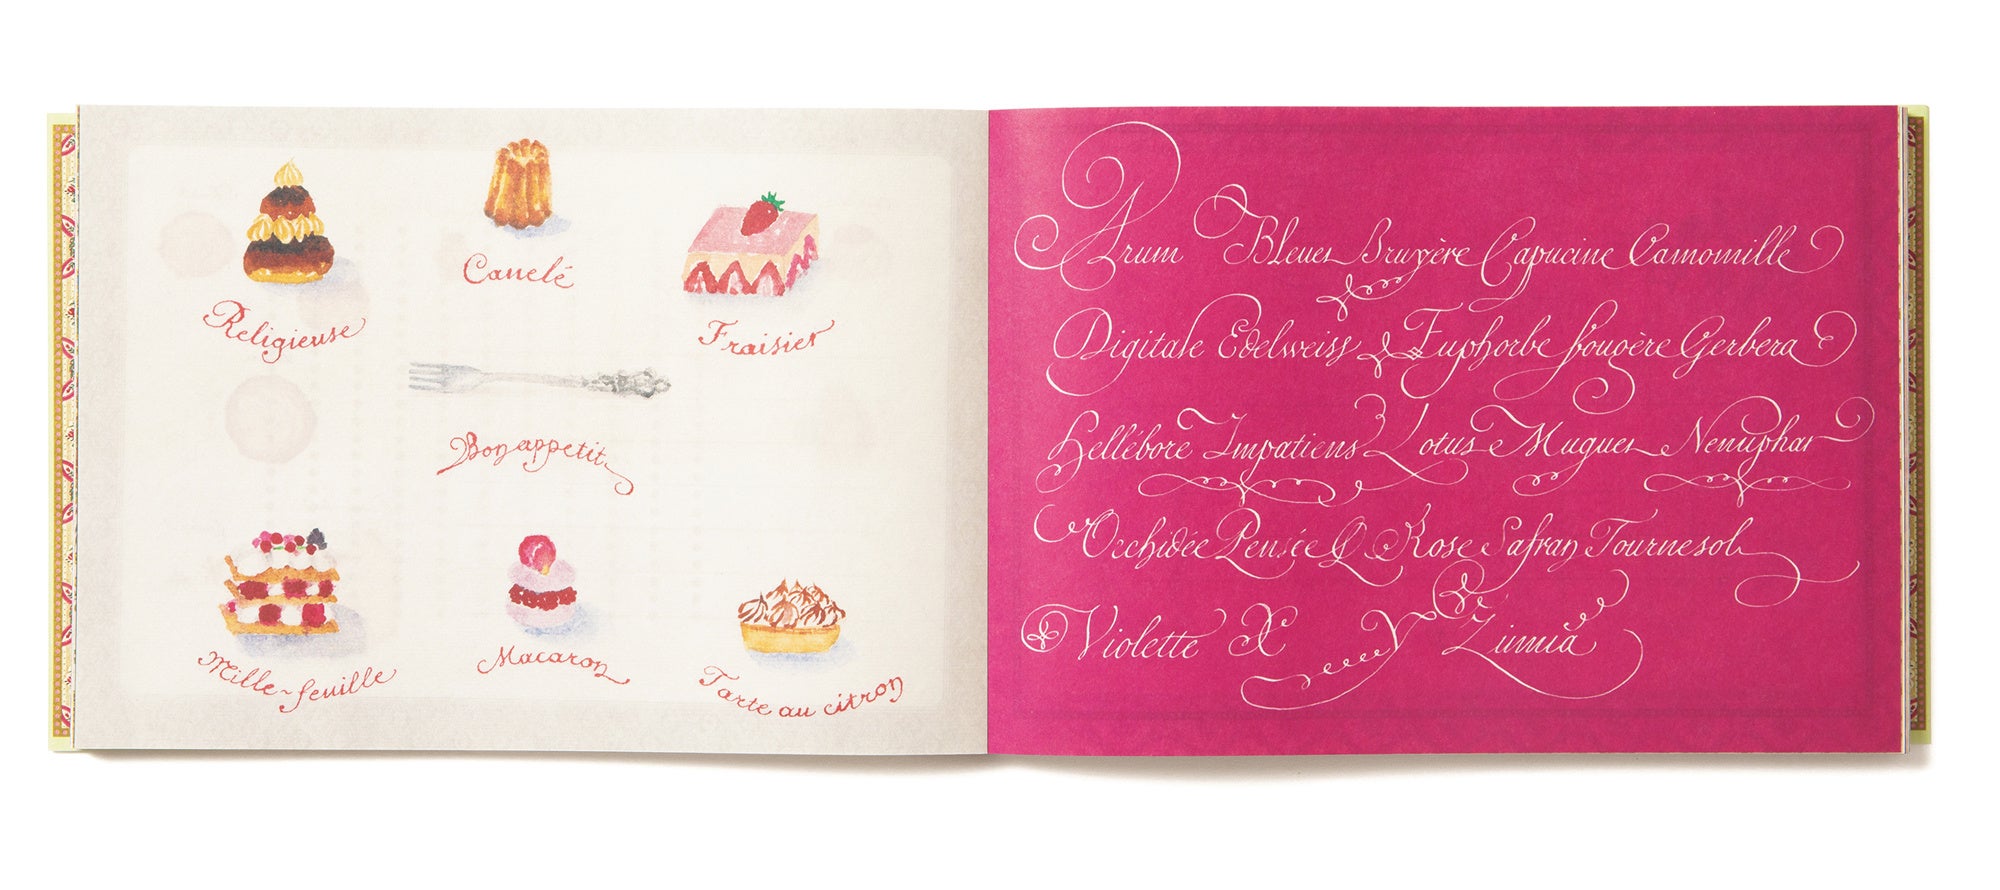 Canelé
Religieuse
Fraisier
Bon appetit
Mille-feuille
Macaron
Tarte au citron
Arum Bleuet Bruyère Capucine Camomille
Digitale Edelweiss Euphorbe fougère Gerbera
Hellébore Impatiens Lotus Muguet Nenuphar
Orchidée Pensée Q Rose Safran Tournesol
Violette X Y Zinnia